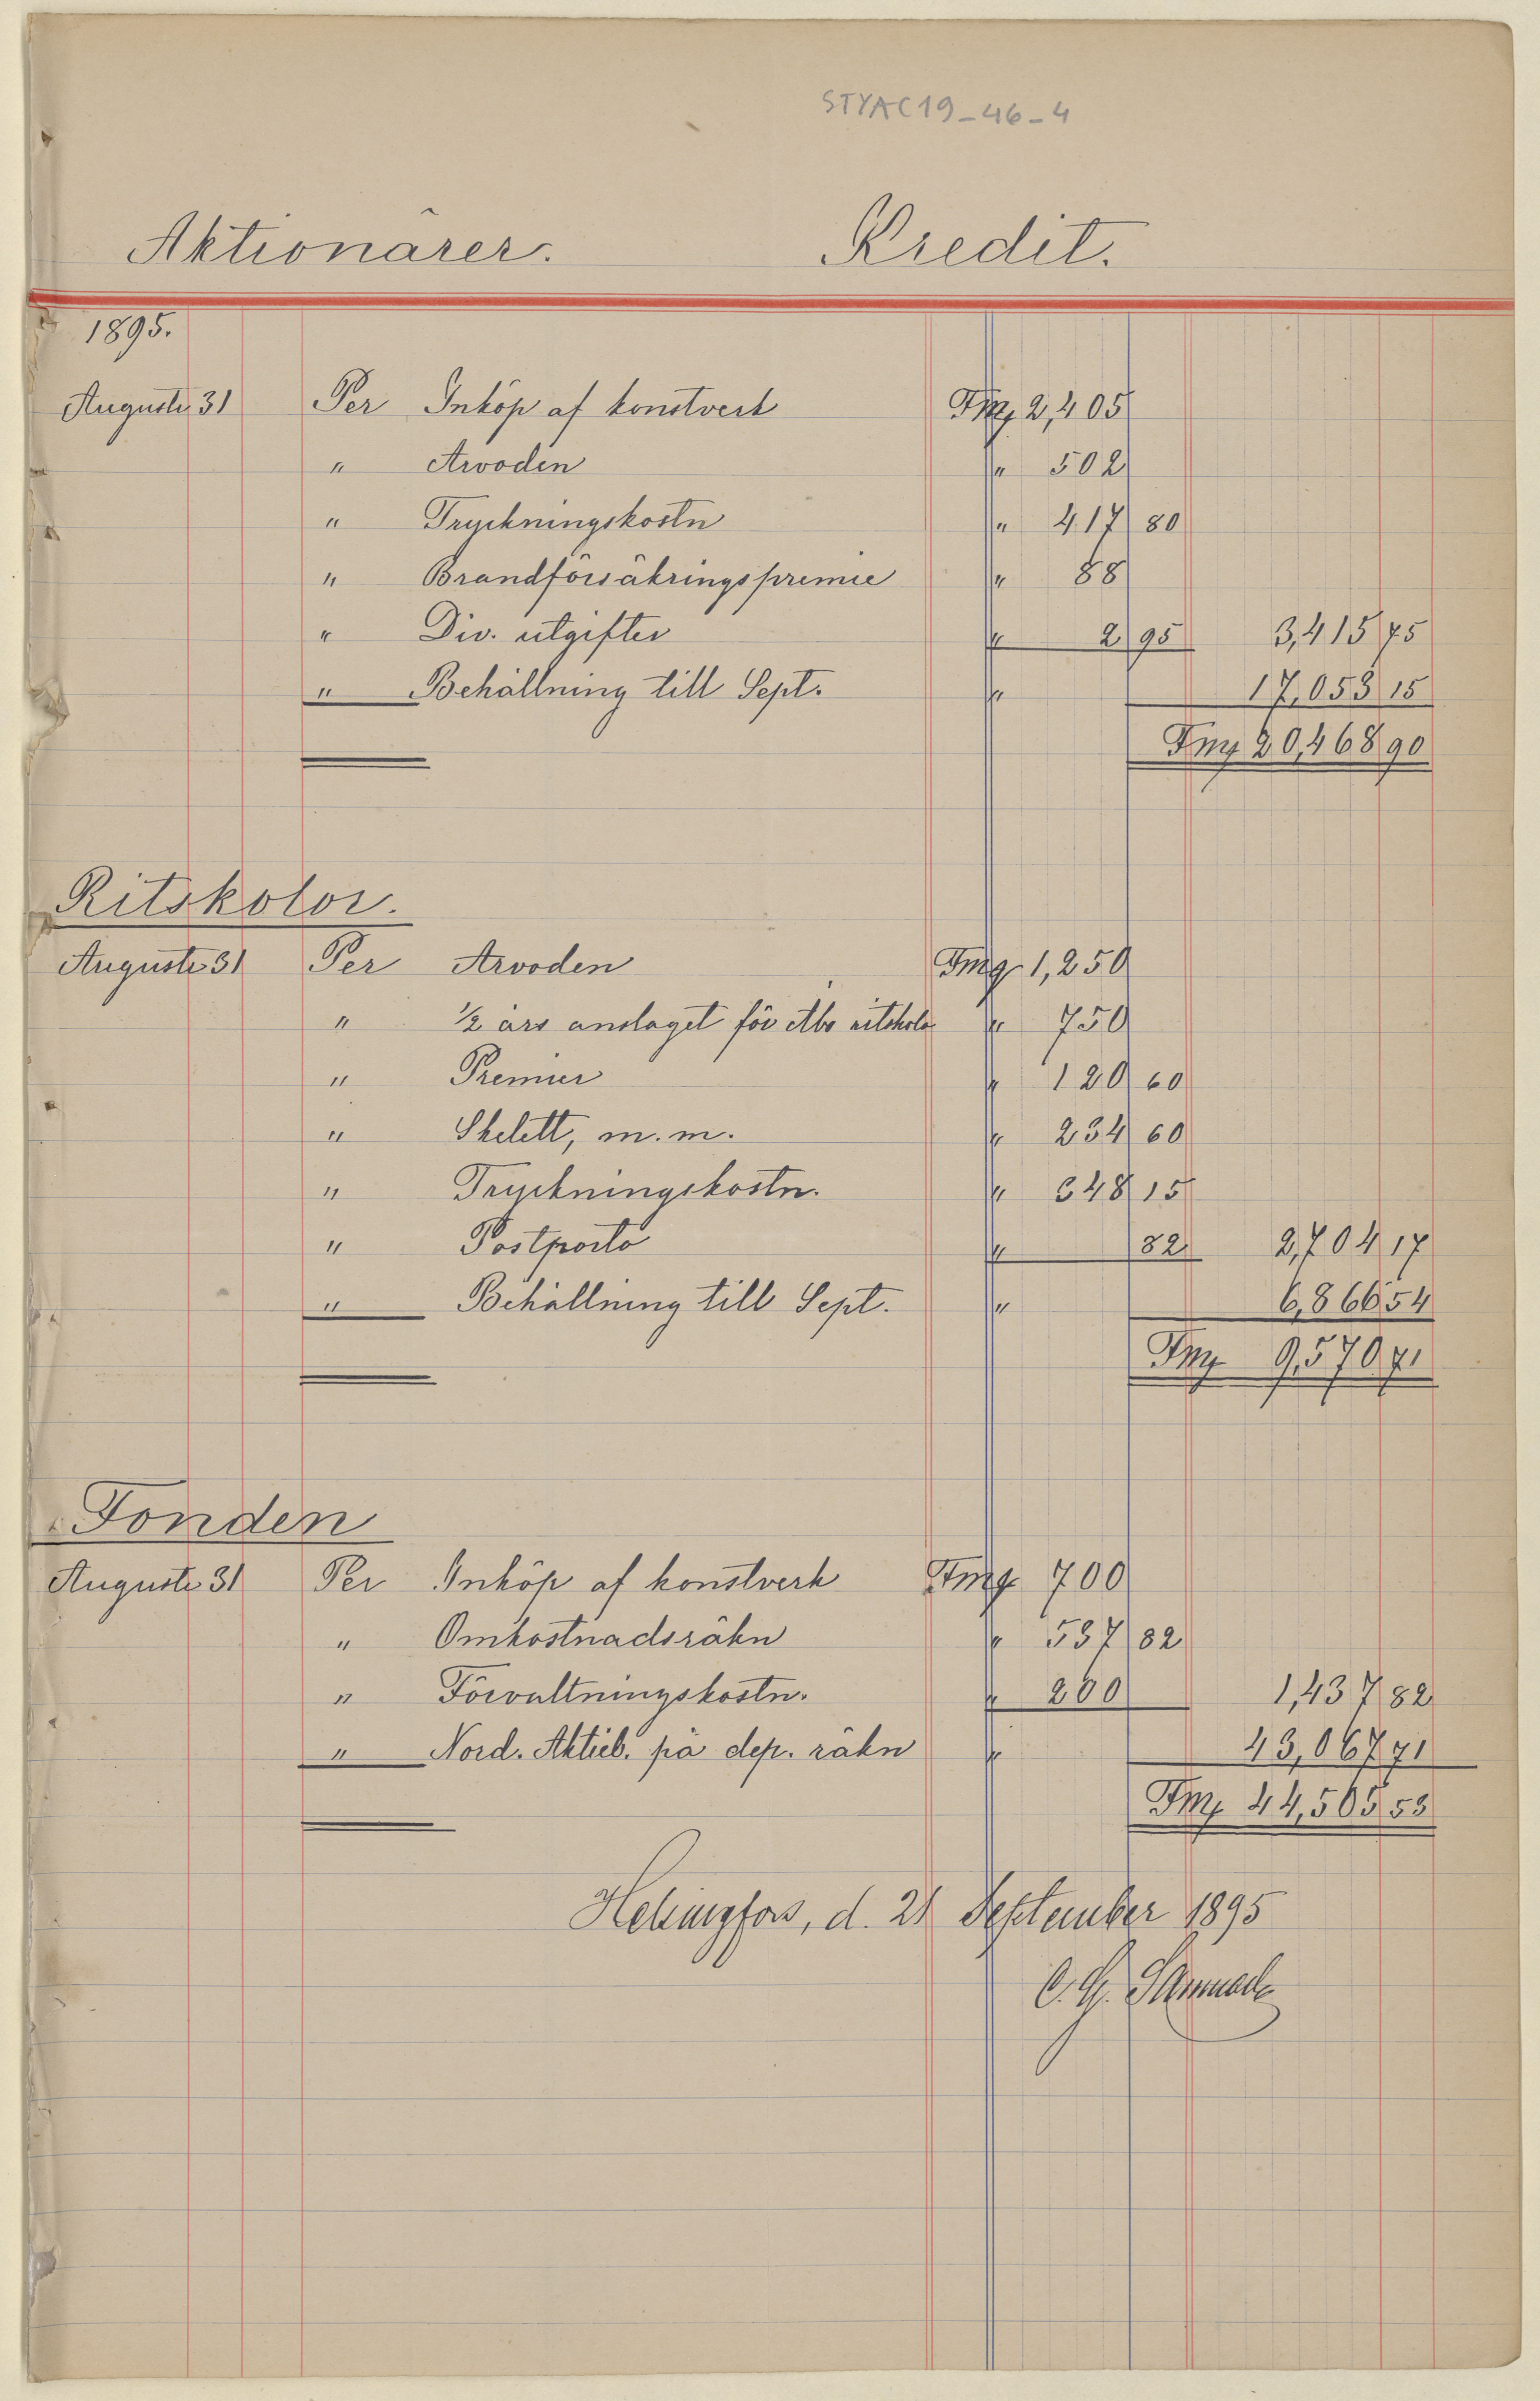 STYAC19-46-4
Aktionärer. Kredit.
1895.
Augusti 31 Per Inköp af konstverk Fmg 2,405
" Arvoden " 502
" Tryckningskostn " 417 80
" Brandförsäkringspremie " 88
" Div. utgifter " 2 95 3,415 75
" Behållning till Sept. " 17,053 15
Fmg 20,468 90
Ritskolor.
Augusti 31 Per Arvoden Fmg 1,250
" 1/2 års anslaget för Åbo ritskola " 750
" Premier " 120 60
" Skelett, m. m. " 234 60
" Tryckningskostn. " 348 15
" Postporto " 82 2,704 17
" Behållning till Sept. " 6,866 54
Fmg 9,570 71
Fonden
Augusti 31 Per Inköp af konstverk Fmg 700
" Omkostnadsräkn " 537 82
" Förvaltningskostn. " 200 1,437 82
" Nord. Aktieb. på dep. räkn " 43,067 71
Fmg 44,505 53
Helsingfors, d. 21 September 1895
C. G.